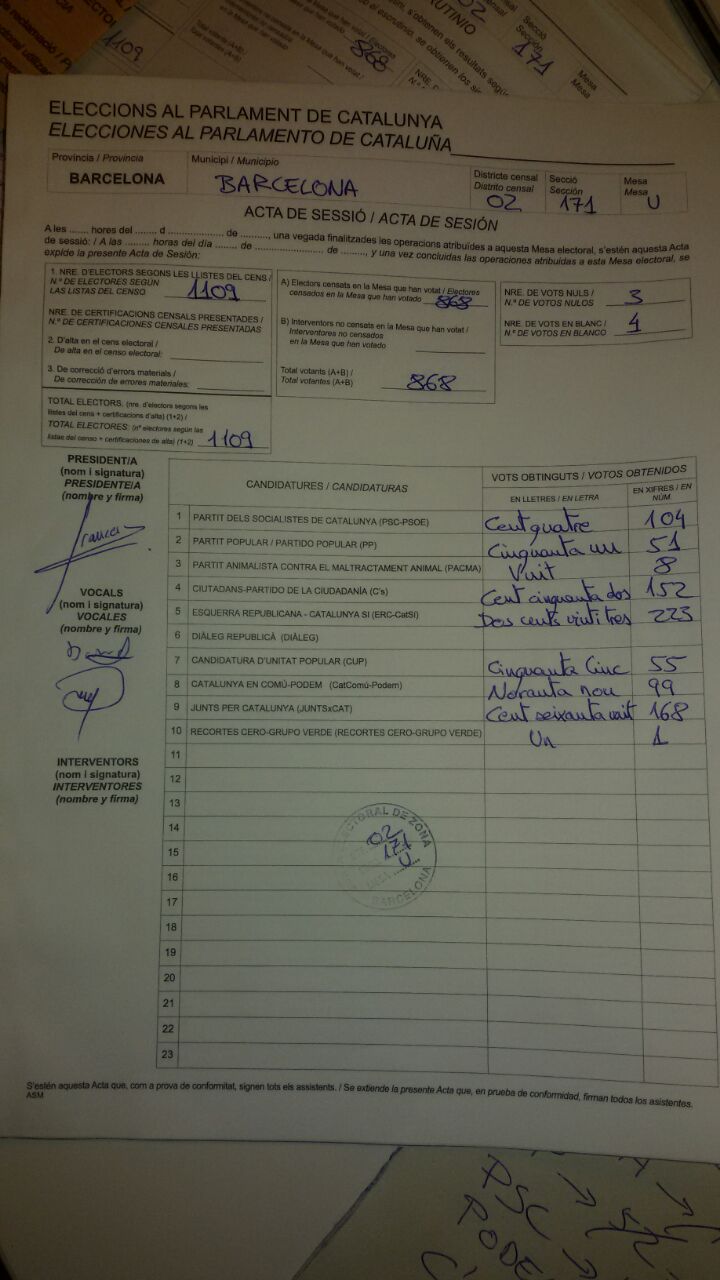 1109
868
171
Secció
Sección
Mesa
Mesa
ELECCIONS AL PARLAMENT DE CATALUNYA
ELECCIONES AL PARLAMENTO DE CATALUÑA
Província / Provincia
BARCELONA
Municipi / Municipio
BARCELONA
Districte censal
Distrito censal
02
Secció
Sección
171
Mesa
Mesa
U
ACTA DE SESSIÓ / ACTA DE SESIÓN
A les ....... hores del ....... d ........................ de ..........., una vegada finalitzades les operacions atribuïdes a aquesta Mesa electoral, s'estén aquesta Acta
de sessió: / A las ......... horas del día ....... de ........................ de ........, y una vez concluidas las operaciones atribuidas a esta Mesa electoral, se
expide la presente Acta de Sesión:
1. NRE. D'ELECTORS SEGONS LES LLISTES DEL CENS /
N.º DE ELECTORES SEGÚN
LAS LISTAS DEL CENSO
1109
NRE. DE CERTIFICACIONS CENSALS PRESENTADES /
N.º DE CERTIFICACIONES CENSALES PRESENTADAS
2. D'alta en el cens electoral /
De alta en el censo electoral:
3. De correcció d'errors materials /
De corrección de errores materiales:
TOTAL ELECTORS: (nre. d'electors segons les
llistes del cens + certificacions d'alta) (1+2) /
TOTAL ELECTORES: (nº electores según las
listas del censo + certificaciones de alta) (1+2)
1109
A) Electors censats en la Mesa que han votat / Electores
censados en la Mesa que han votado
868
B) Interventors no censats en la Mesa que han votat /
Interventores no censados
en la Mesa que han votado
Total votants (A+B) /
Total votantes (A+B)
868
NRE. DE VOTS NULS /
N.º DE VOTOS NULOS
3
NRE. DE VOTS EN BLANC /
N.º DE VOTOS EN BLANCO
4
PRESIDENT/A
(nom i signatura)
PRESIDENTE/A
(nombre y firma)
VOCALS
(nom i signatura)
VOCALES
(nombre y firma)
INTERVENTORS
(nom i signatura)
INTERVENTORES
(nombre y firma)
CANDIDATURES / CANDIDATURAS
VOTS OBTINGUTS / VOTOS OBTENIDOS
EN LLETRES / EN LETRA
EN XIFRES / EN NÚM.
1 PARTIT DELS SOCIALISTES DE CATALUNYA (PSC-PSOE) Cent quatre 104
2 PARTIT POPULAR / PARTIDO POPULAR (PP) Cinquanta un 51
3 PARTIT ANIMALISTA CONTRA EL MALTRACTAMENT ANIMAL (PACMA) Vuit 8
4 CIUTADANS-PARTIDO DE LA CIUDADANÍA (C's) Cent cinquanta dos 152
5 ESQUERRA REPUBLICANA - CATALUNYA SI (ERC-CatSI) Dos cents vinti tres 223
6 DIÀLEG REPUBLICÀ (DIÀLEG)
7 CANDIDATURA D'UNITAT POPULAR (CUP) Cinquanta Cinc 55
8 CATALUNYA EN COMÚ-PODEM (CatComú-Podem) Noranta nou 99
9 JUNTS PER CATALUNYA (JUNTSxCAT) Cent seixanta vuit 168
10 RECORTES CERO-GRUPO VERDE (RECORTES CERO-GRUPO VERDE) Un 1
11
12
13
14
15
16
17
18
19
20
21
22
23
ELECTORAL DE ZONA
02
171
U
BARCELONA
S'estén aquesta Acta que, com a prova de conformitat, signen tots els assistents. / Se extiende la presente Acta que, en prueba de conformidad, firman todos los asistentes.
ASM
PSC
PODE